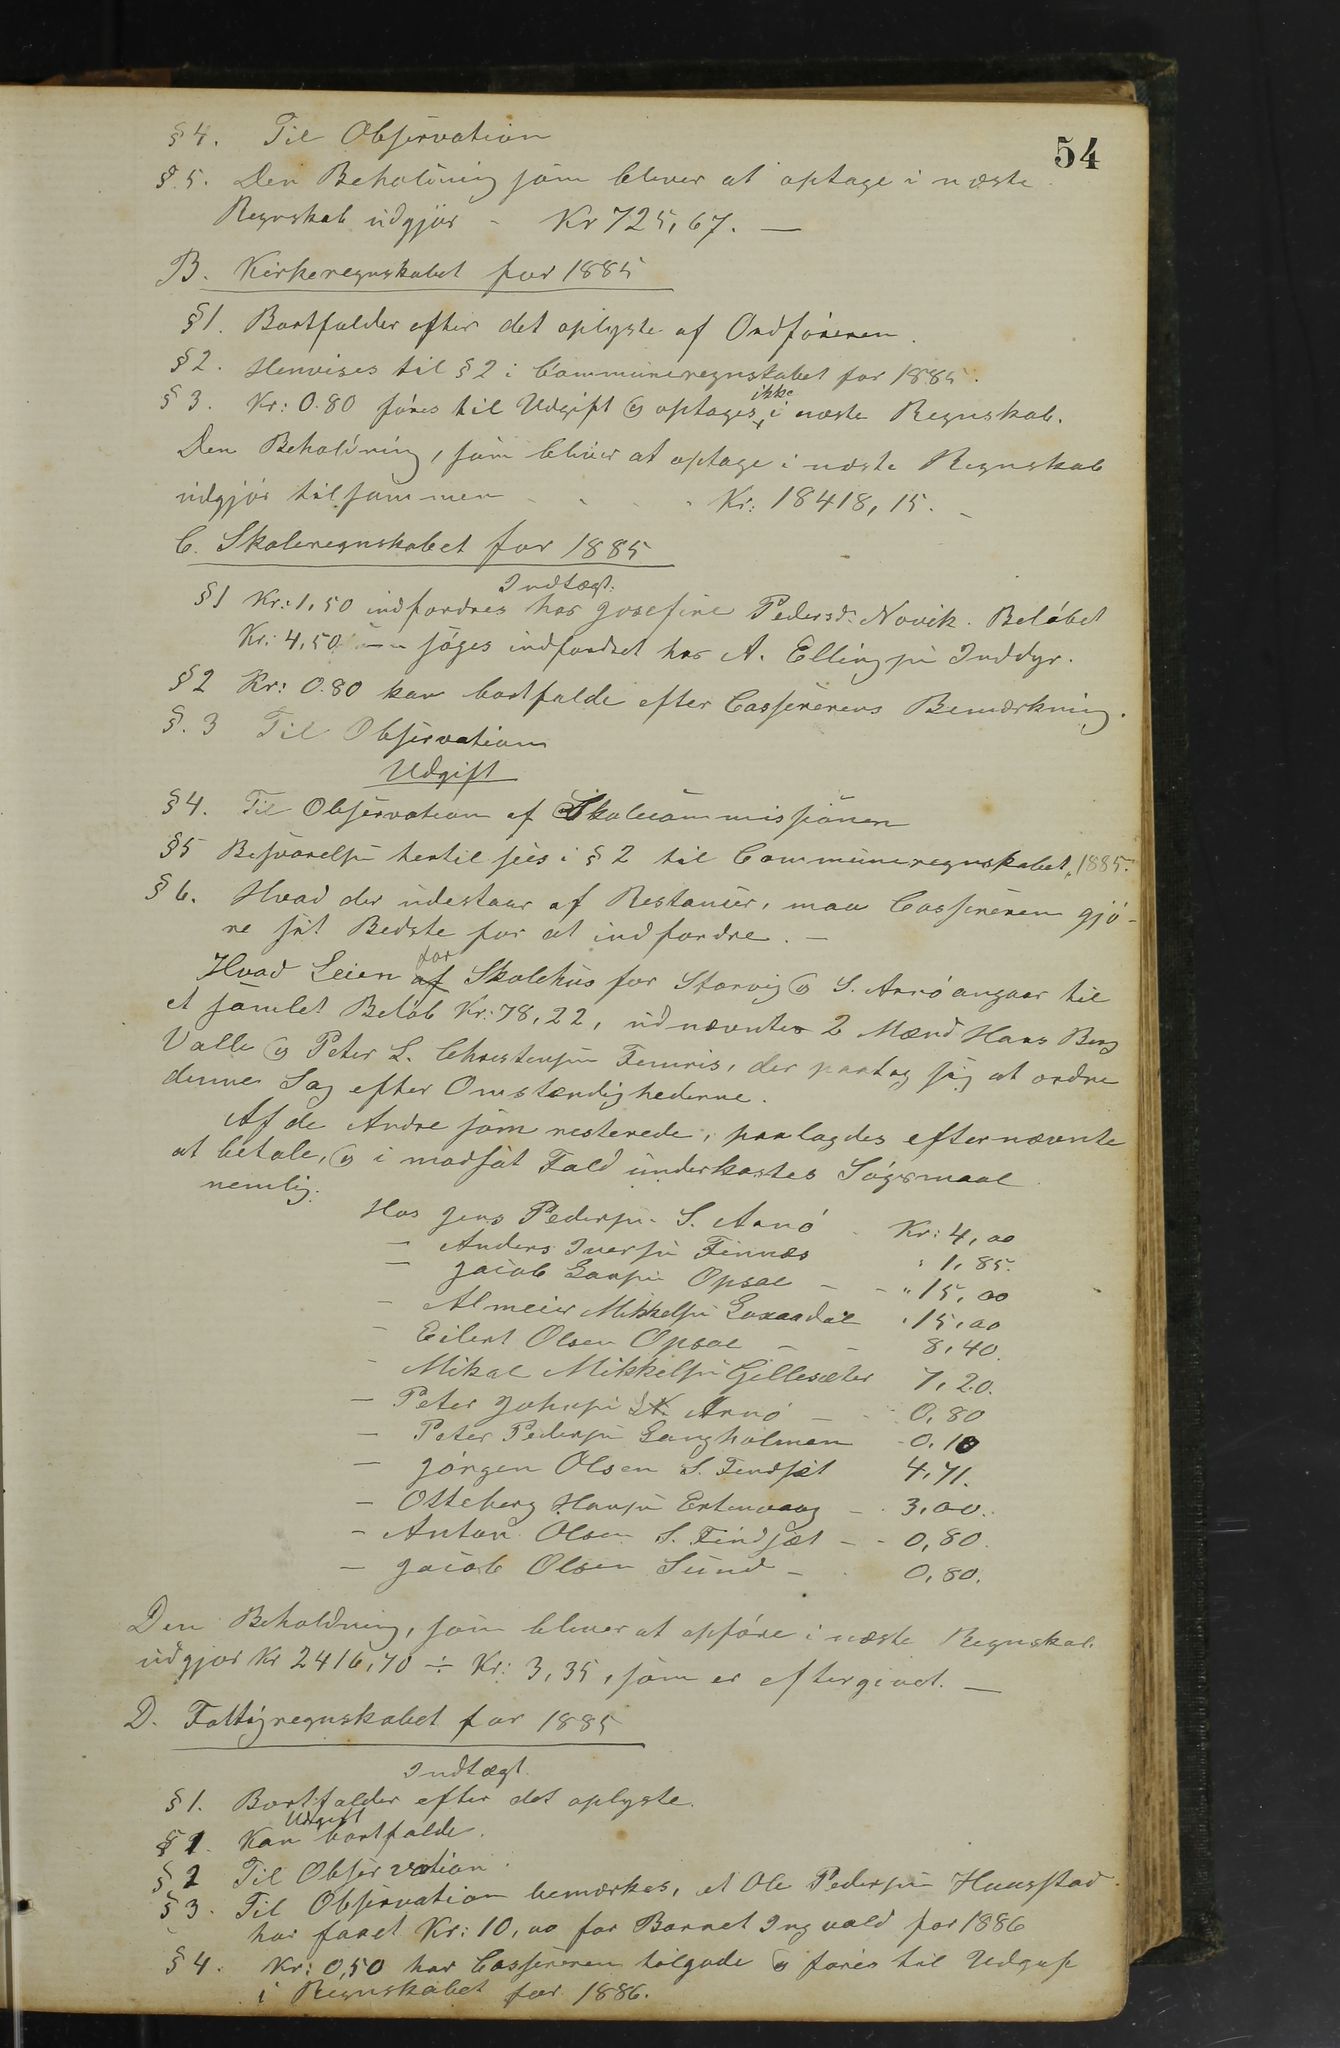 54
§ 4. Til Observation
§ 5. Den Beholdning som bliver at optage i næste
Regnskab udgjør - Kr 725,67. —
B. Kirkeregnskabet for 1885
§1. Bortfalder efter det oplyste af Ordføreren.
§2. Henvises til § 2 i Communeregnskabet for 1885.
§ 3. Kr: 0.80 føres til Udgift og optages ikke i næste Regnskab.
Den Beholdning, som bliver at optage i næste Regnskab
udgjør tilsammen - - - - Kr: 18418,15. -
C. Skoleregnskabet for 1885
Indtægt.
§1 Kr: 1,50 indfordres hos Josefine Pedersd. Novik. Beløbet
Kr: 4,50 søges indfordret hos A. Ellingsen Inddyr.
§2 Kr: 0.80 kan bortfalde efter Cassererens Bemærkning.
§. 3 Til Observation
Udgift
§4. Til Observation af Skolecommissionen
§5 Besvarelsen hertil sees i § 2 til Communeregnskabet, 1885.
§ 6. Hvad der udestaar af Restancer, maa Cassereren gjø-
re sit Bedste for at indfordre. —
Hvad Leien af for Skolehus for Storvig og S. Arnø angaar til
et samlet Beløb Kr: 78,22, udnævntes 2 Mænd Hans Berg
Valle og Peter L. Christensen Femris, der paatog sig at ordne
denne Sag efter Omstændighederne.
Af de Andre som resterede, paalagdes efternævnte
at betale, og i modsat Fald underkastes Søgsmaal
nemlig:
Hos Jens Pedersen S. Arnø - Kr: 4,00
— Anders Iversen Finnæs " 1,85.
— Jacob Larsen Opsal - - " 15,00
— Almeier Mikkelsen " 15,00
— Eilert Olsen Opsal - - 8,40.
— Mikal Mikkelsen Gillesæter 7,20.
— Peter Johnsen Arnø - - 0,80
— Peter Pedersen Langholmen - 0,10
— Jørgen Olsen S. Findset 4,71.
— Otteberg Hansen Ertenvaag - 3,00.
— Anton Olsen S. Findset - - 0,80.
— Jacob Olsen Sund - - 0,80.
Den Beholdning, som bliver at opføre i næste Regnskab
udgjør Kr 2416,70 ÷ Kr: 3,35, som er eftergivet. —
D. Fattigregnskabet for 1885
Indtægt.
§ 1. Bortfalder efter det oplyste.
Udgift
§ 1. Kan bortfalde.
§ 2 Til Observation.
§ 3. Til Observation bemærkes, at Ole Pedersen Huusstad
har faaet Kr: 10,00 for Barnet Ingvald for 1886
§ 4. Kr: 0,50 har Cassereren tilgode og føres til Udgift
i Regnskabet for 1886.